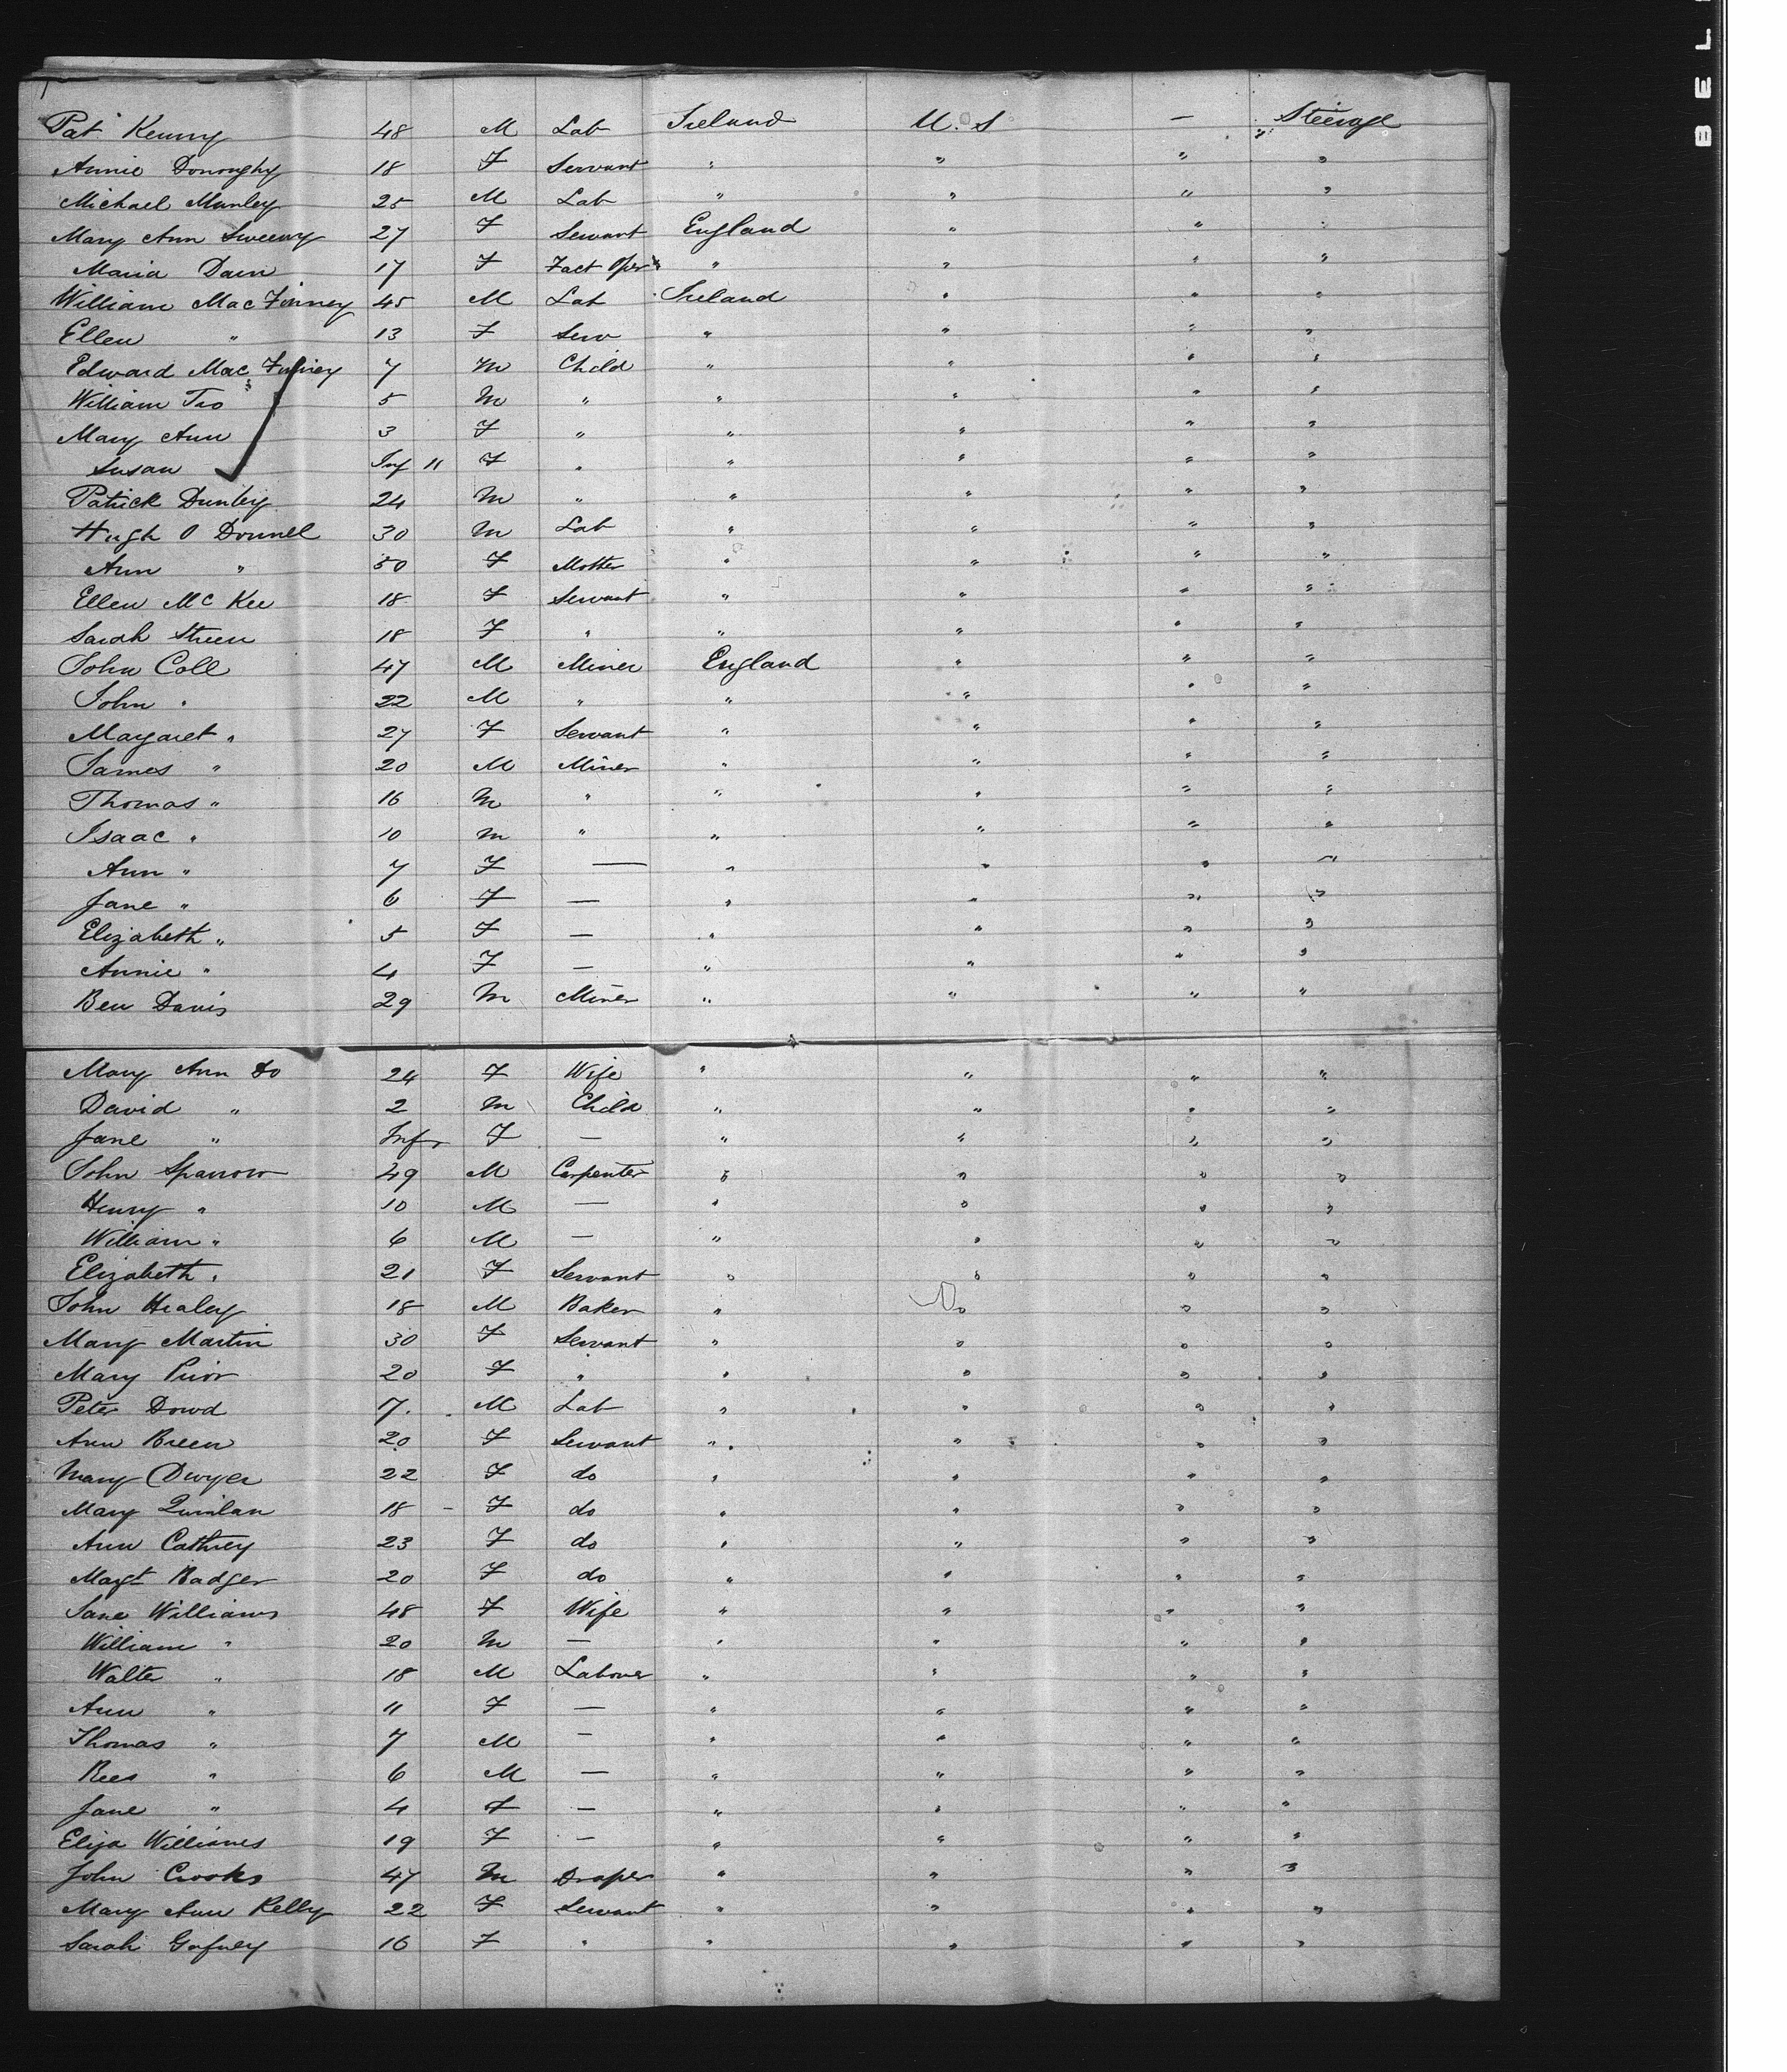 Pat Kenny 48 M Lab Ireland U.S — " Steerage
Annie Donoughy 18 F Servant " " " "
Michael Manley 25 M Lab " " " "
Mary Ann Sweeny 27 F Servant England " " "
Maria Dain 17 F Fact Oper " " " "
William Mac Finney 45 M Lab Ireland " " "
Ellen " 13 F Serv " " " "
Edward Mac Finney 7 M Child " " " "
William 5 M " " " " "
Mary Ann 3 F " " " " "
Susan Inf 11 F " " " " "
Patrick Dunley 24 M " " " " "
Hugh O Donnel 30 M Lab " " " "
Ann " 50 F Mother " " " "
Ellen Mc Kee 18 F Servant " " " "
Sarah Steen 18 F " " " " "
John Coll 47 M Miner England " " "
John " 22 M " " " " "
Margaret " 27 F Servant " " " "
James " 20 M Miner " " " "
Thomas " 16 M " " " " "
Isaac " 10 M " " " " "
Ann " 7 F — " " " "
Jane " 6 F — " " " "
Elizabeth " 5 F — " " " "
Annie " 4 F — " " " "
Ben Davis 29 M Miner " " " "
Mary Ann Do 24 F Wife " " " "
David " 2 M Child " " " "
Jane " Inft F — " " " "
John Sparrow 49 M Carpenter " " " "
Henry " 10 M — " " " "
William " 6 M — " " " "
Elizabeth " 21 F Servant " " " "
John Healey 18 M Baker " " " "
Mary Martin 30 F Servant " " " "
Mary Prior 20 F " " " " "
Peter Dowd 17. M Lab " " " "
Ann Breen 20 F Servant " " " "
Mary Dwyer 22 F do " " " "
Mary Quinlan 18 - F do " " " "
Ann Cathrey 23 F do " " " "
Margt Badger 20 F do " " " "
Jane Williams 48 F Wife " " " "
William " 20 M — " " " "
Walter " 18 M Labourer " " " "
Ann " 11 F — " " " "
Thomas " 7 M — " " " "
Rees " 6 M — " " " "
Jane " 4 F — " " " "
Eliza Williams 19 F — " " " "
John Crooks 47 M Draper " " " "
Mary Ann Kelly 22 F Servant " " " "
Sarah Gafney 16 F " " " " "
B E L